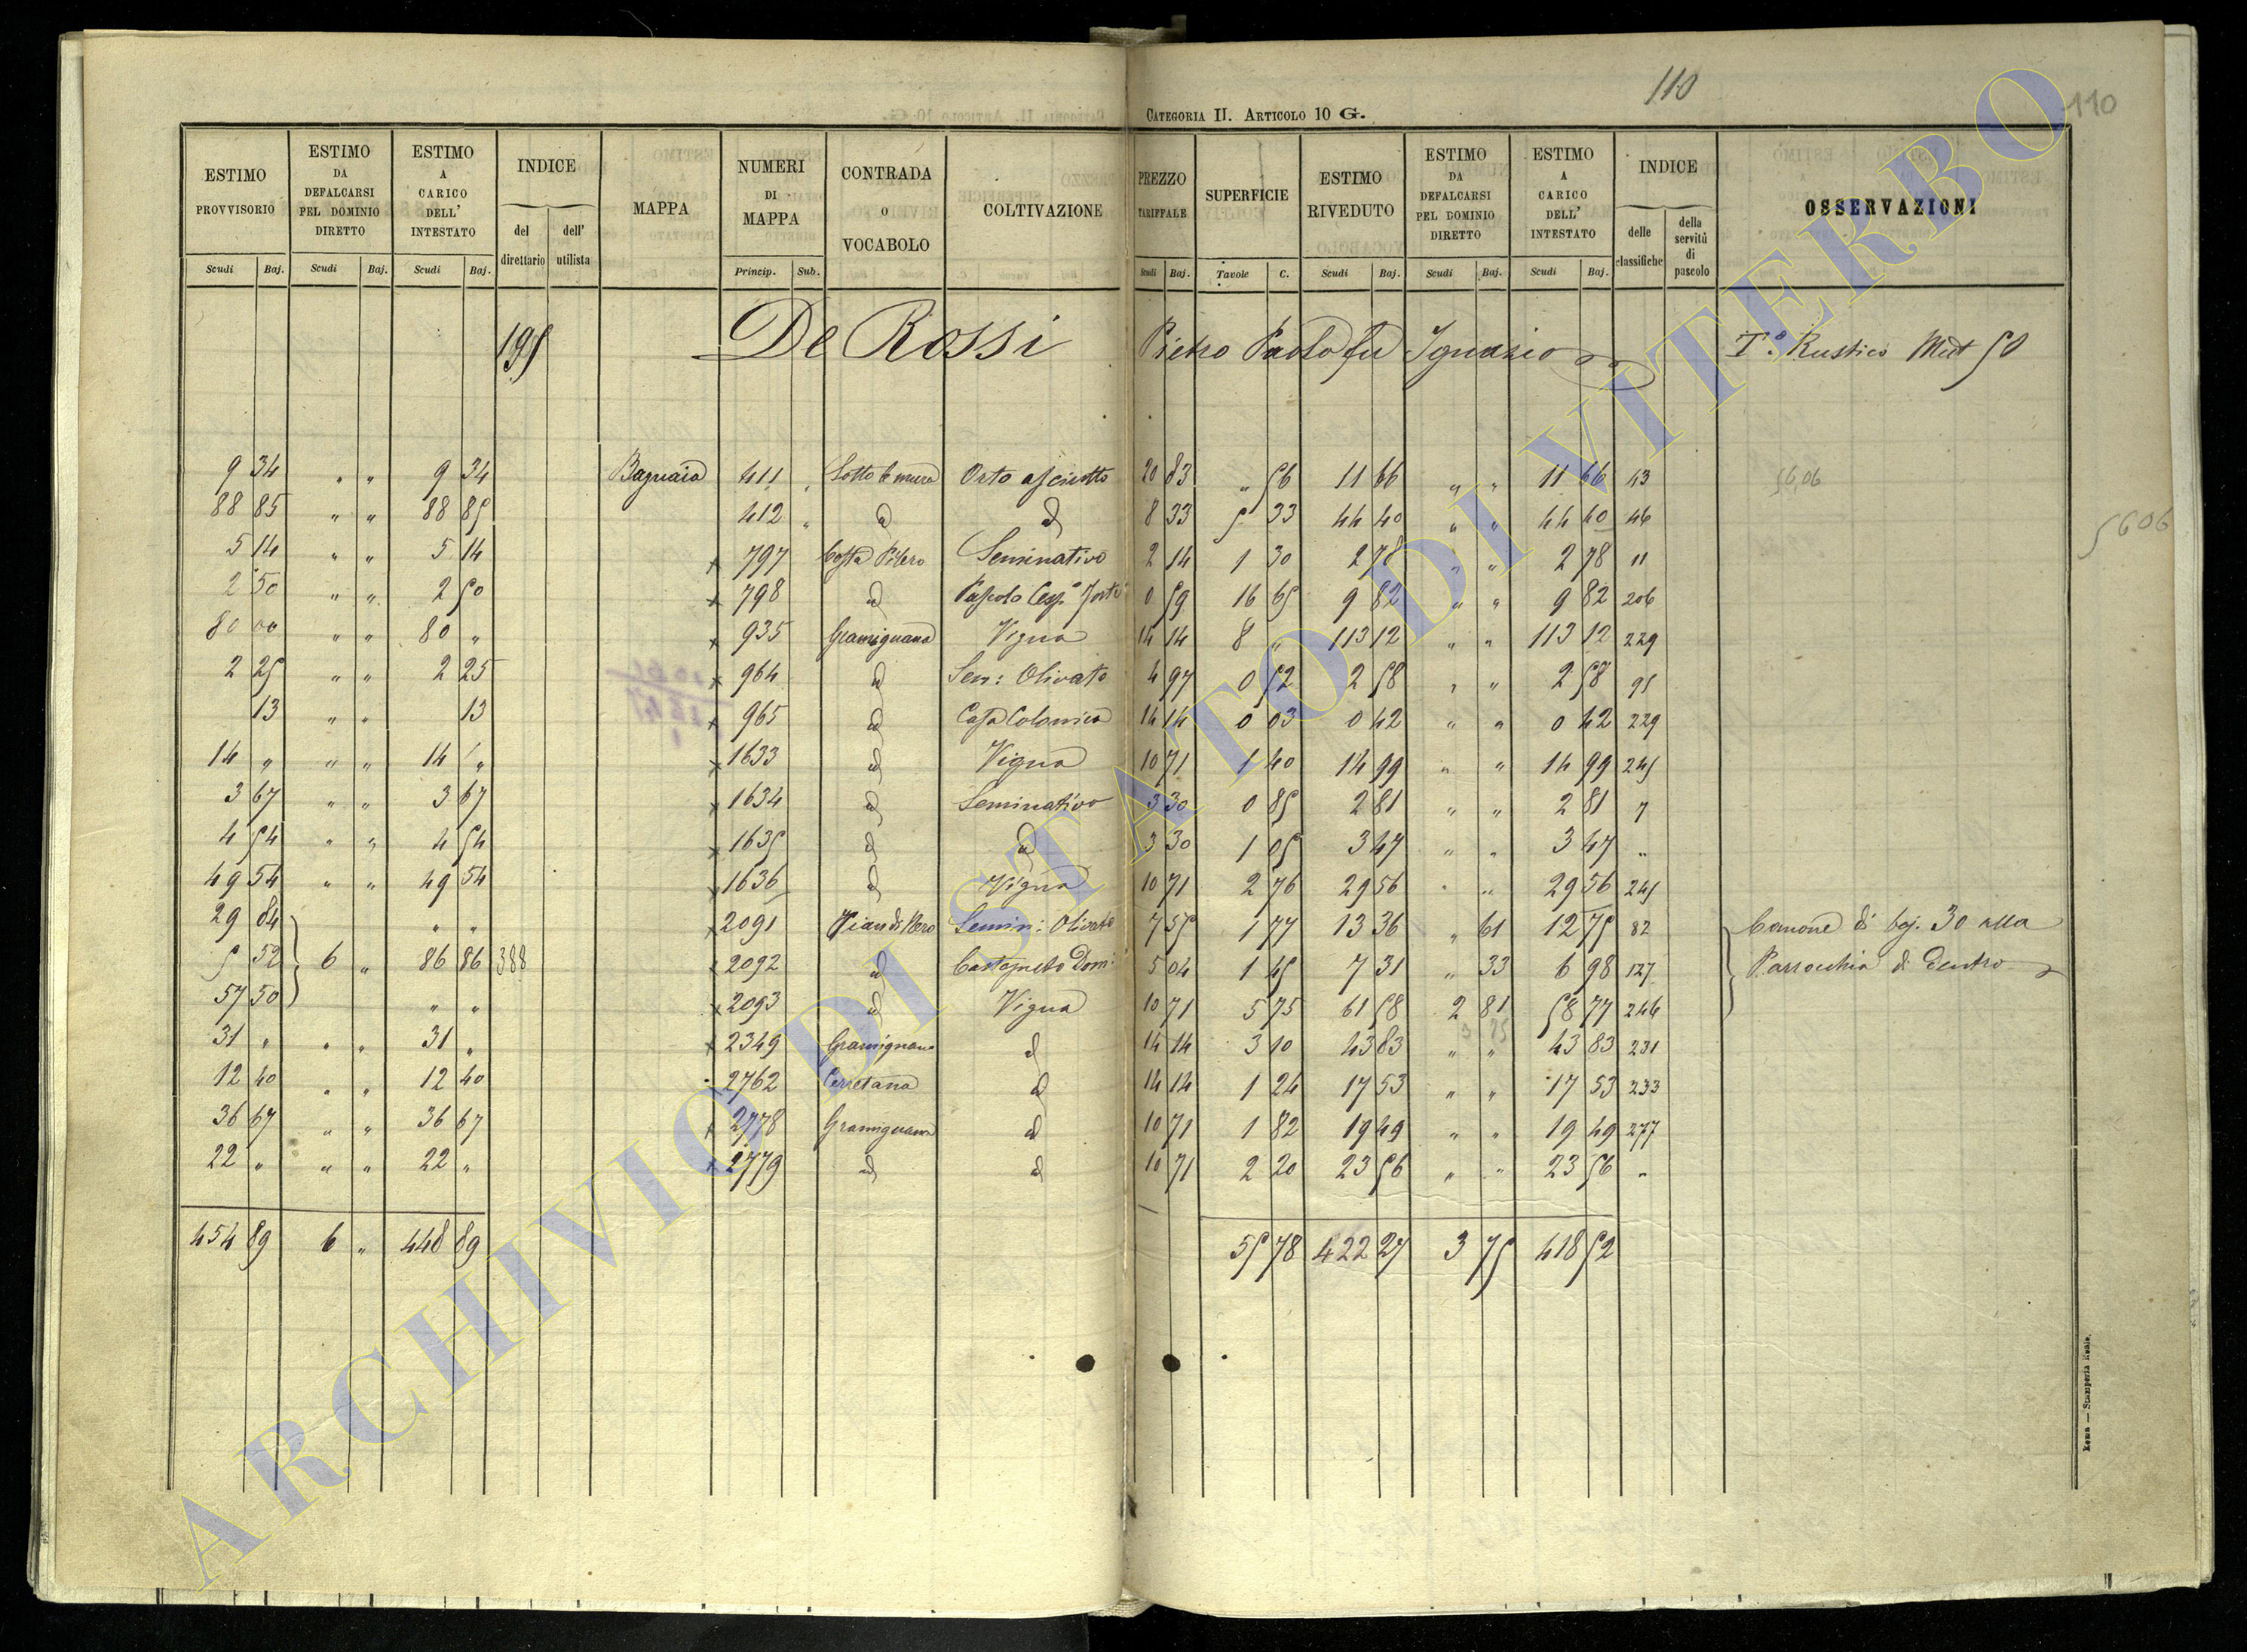 110
110
CATEGORIA II. ARTICOLO 10 G.
ESTIMO PROVVISORIO | ESTIMO DA DEFALCARSI PEL DOMINIO DIRETTO | ESTIMO A CARICO DELL' INTESTATO | INDICE del direttario | dell' utilista | MAPPA | NUMERI DI MAPPA | CONTRADA O VOCABOLO | COLTIVAZIONE | PREZZO TARIFFALE | SUPERFICIE | ESTIMO RIVEDUTO | ESTIMO DA DEFALCARSI PEL DOMINIO DIRETTO | ESTIMO A CARICO DELL' INTESTATO | INDICE delle classifiche | della servitù di pascolo | OSSERVAZIONI
Scudi Baj. | Scudi Baj. | Scudi Baj. | Princip. Sub. | Scudi Baj. | Tavole C. | Scudi Baj. | Scudi Baj. | Scudi Baj.
195 De Rossi Pietro Paolo fu Ignazio T.° Rustico Mect 50
9 34 " " 9 34 Bagnaia 411 " Sotto le mura Orto asciutto 20 83 " 56 11 66 " " 11 66 43 56,06
88 85 " " 88 85 412 " id id 8 33 5 33 44 40 " " 44 40 46 5606
5 14 " " 5 14 x 797 Costa Pilero Seminativo 2 14 1 30 2 78 " " 2 78 11
2 50 " " 2 50 x 798 id Pascolo Cesp.° forte 0 59 16 65 9 82 " " 9 82 206
80 00 " " 80 " x 935 Gramignana Vigna 14 14 8 " 113 12 " " 113 12 229
2 25 " " 2 25 x 964 id Sem: Olivato 4 97 0 52 2 58 " " 2 58 95
13 " " 13 x 965 id Casa Colonica 14 14 0 03 0 42 " " 0 42 229
14 " " " 14 " x 1633 id Vigna 10 71 1 40 14 99 " " 14 99 245
3 67 " " 3 67 x 1634 id Seminativo 3 30 0 85 2 81 " " 2 81 7
4 54 " " 4 54 x 1635 id id 3 30 1 05 3 47 " " 3 47 "
49 54 " " 49 54 x 1636 id Vigna 10 71 2 76 29 56 " " 29 56 245
29 84 " " x 2091 Pian di Nero Semin: Olivato 7 55 1 77 13 36 " 61 12 75 82 Canone di baj. 30 alla
5 52 6 " 86 86 388 x 2092 id Castagneto Dom: 5 04 1 45 7 31 " 33 6 98 127 Parrocchia di Dentro
57 50 " " x 2093 id Vigna 10 71 5 75 61 58 2 81 58 77 246
3 75
31 " " " 31 " x 2349 Gramignana id 14 14 3 10 43 83 " " 43 83 231
12 40 " " 12 40 2762 Cerretana id 14 14 1 24 17 53 " " 17 53 233
36 67 " " 36 67 x 2778 Gramignana id 10 71 1 82 19 49 " " 19 49 277
22 " " " 22 " x 2779 id id 10 71 2 20 23 56 " " 23 56 "
454 89 6 " 448 89 55 78 422 27 3 75 418 52
Roma — Stamperia Reale.
ARCHIVIO DI STATO DI VITERBO